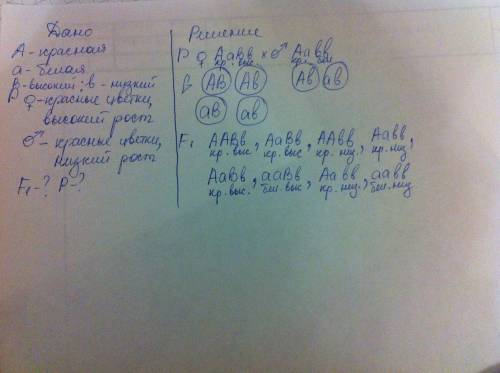 Дано
А - красная
а - белая
В - высокий; в - низкий
Р ♀ - красные цветки,
высокий рост
♂ - красные цветки,
низкий рост
F₁ - ? Р - ?
Решение
Р ♀ АаВв × ♂ Аавв
кр. выс. кр.
G АВ Ав Ав ав
аВ ав
F₁ ААВв, АаВв, ААвв, Аавв,
кр. выс. кр. выс кр. низ. кр. низ
АаВв, ааВв, Аавв, аавв
кр. выс. бел. выс кр. низ. бел. низ